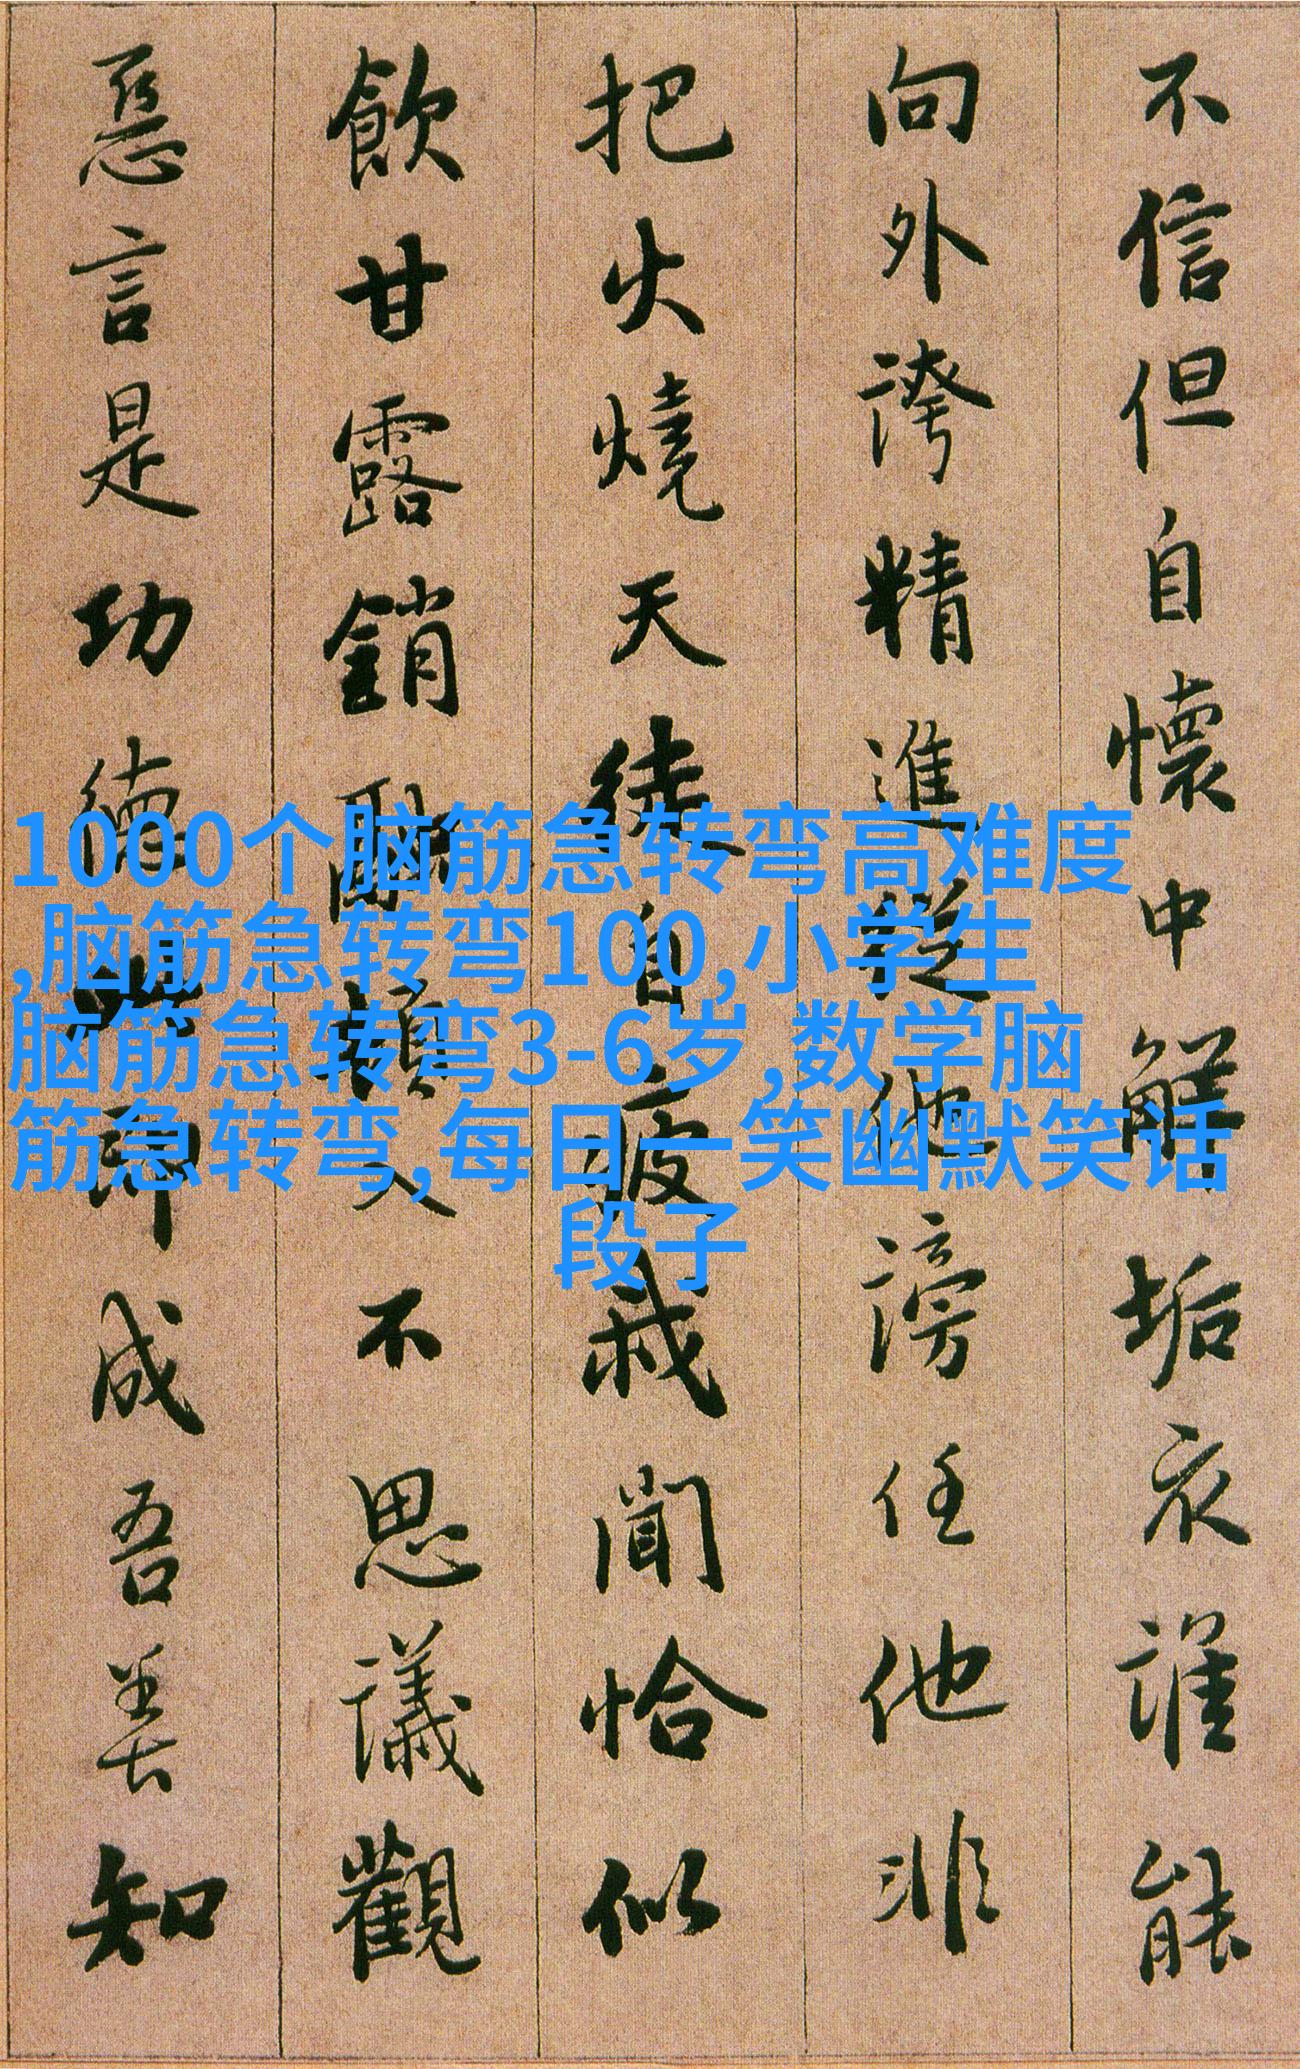 不信但自懷中解垢衣誰能
向外誇精進從他謗任他非
把火燒天徒自疲我聞恰似
飲甘露銷融頓入不思議觀
惡言是功德此即成吾善知
1000个脑筋急转弯高难度
,脑筋急转弯100,小学生
脑筋急转弯3-6岁,数学脑
筋急转弯,每日一笑幽默笑话
段子